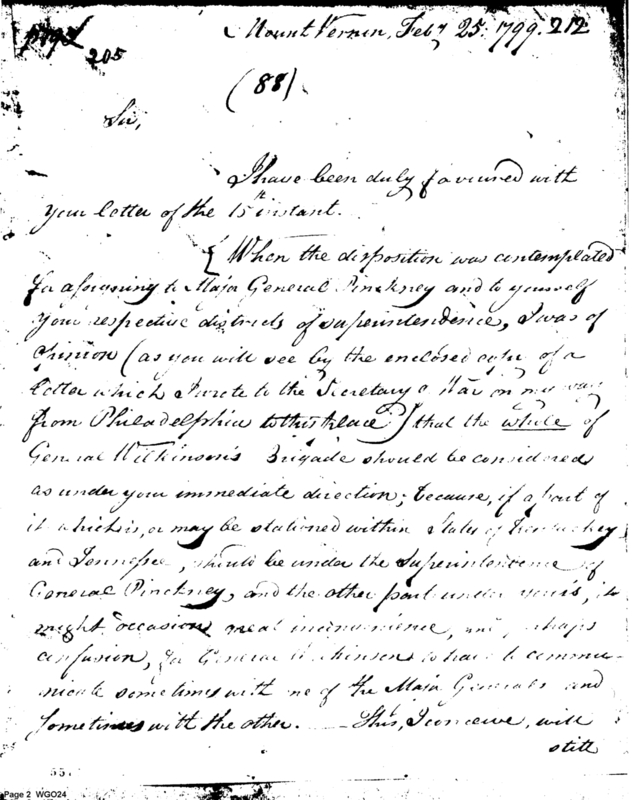 page 205
Mount Vernon, Feby 25. 1799. 212
(88)
Sir,
I have been duly favoured with
your letter of the 15th instant.
{ When the disposition was contemplated
for assigning to Major General Pinckney and to yourself
your respective districts of superintendence, I was of
opinion (as you will see by the enclosed copy of a
letter which I wrote to the Secretary o War on my way
from Philadelphia to this place) that the whole of
General Wilkinson's Brigade should be considered
as under your immediate direction; because, if a part of
it which is, or may be stationed within States of Kentuckey
and Tennessee, should be under the Superintendence of
General Pinckney, and the other part under yours, it
might occasion great inconvenience, and perhaps
confusion, for General Wilkinson to have to commu-
nicate sometimes with one of the Major Generals and
sometimes with the other. — This, I conceive, will
still
557
Page 2 WGO24